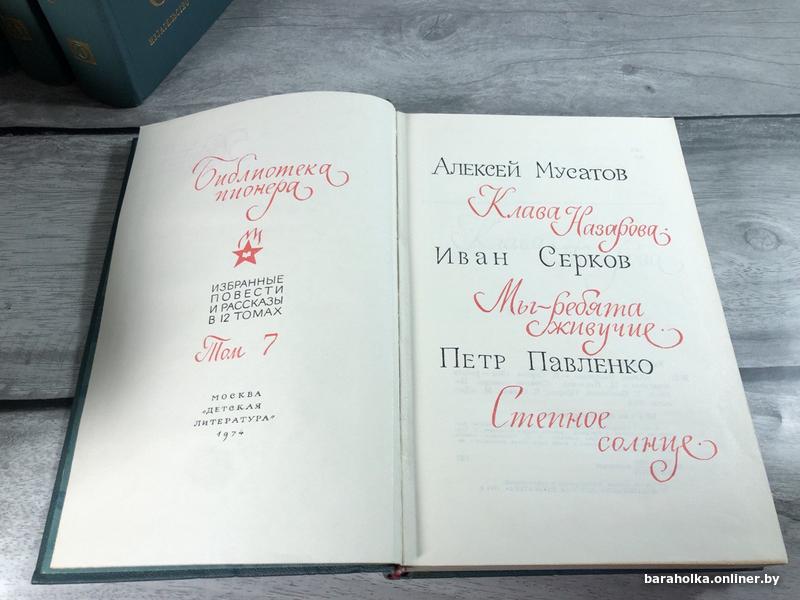 ИЗДАТЕЛЬСТВО
Библиотека
пионера
ИЗБРАННЫЕ
ПОВЕСТИ
И РАССКАЗЫ
В 12 ТОМАХ
Том 7
МОСКВА
„ДЕТСКАЯ
ЛИТЕРАТУРА"
1974
АЛЕКСЕЙ МУСАТОВ
Клава
Назарова.
ИВАН СЕРКОВ
Мы-ребята
живучие.
ПЕТР ПАВЛЕНКО
Степное
солнце.
baraholka.onliner.by